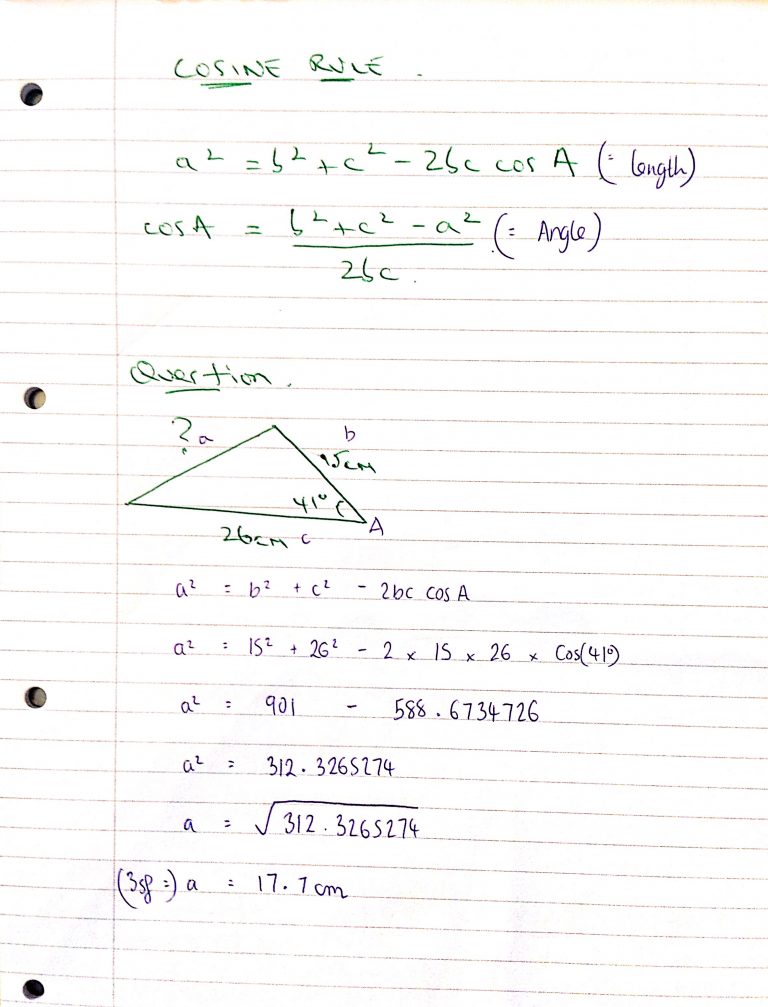 COSINE RULE.
a² = b² + c² - 2bc cos A (= length)
cosA = b² + c² - a² (= Angle)
2bc.
Question.
? a
b
15cm
41°
A
26cm c
a² = b² + c² - 2bc cos A
a² = 15² + 26² - 2 × 15 × 26 × Cos(41°)
a² = 901 - 588.6734726
a² = 312.3265274
a = √312.3265274
(3sf =) a = 17.7cm